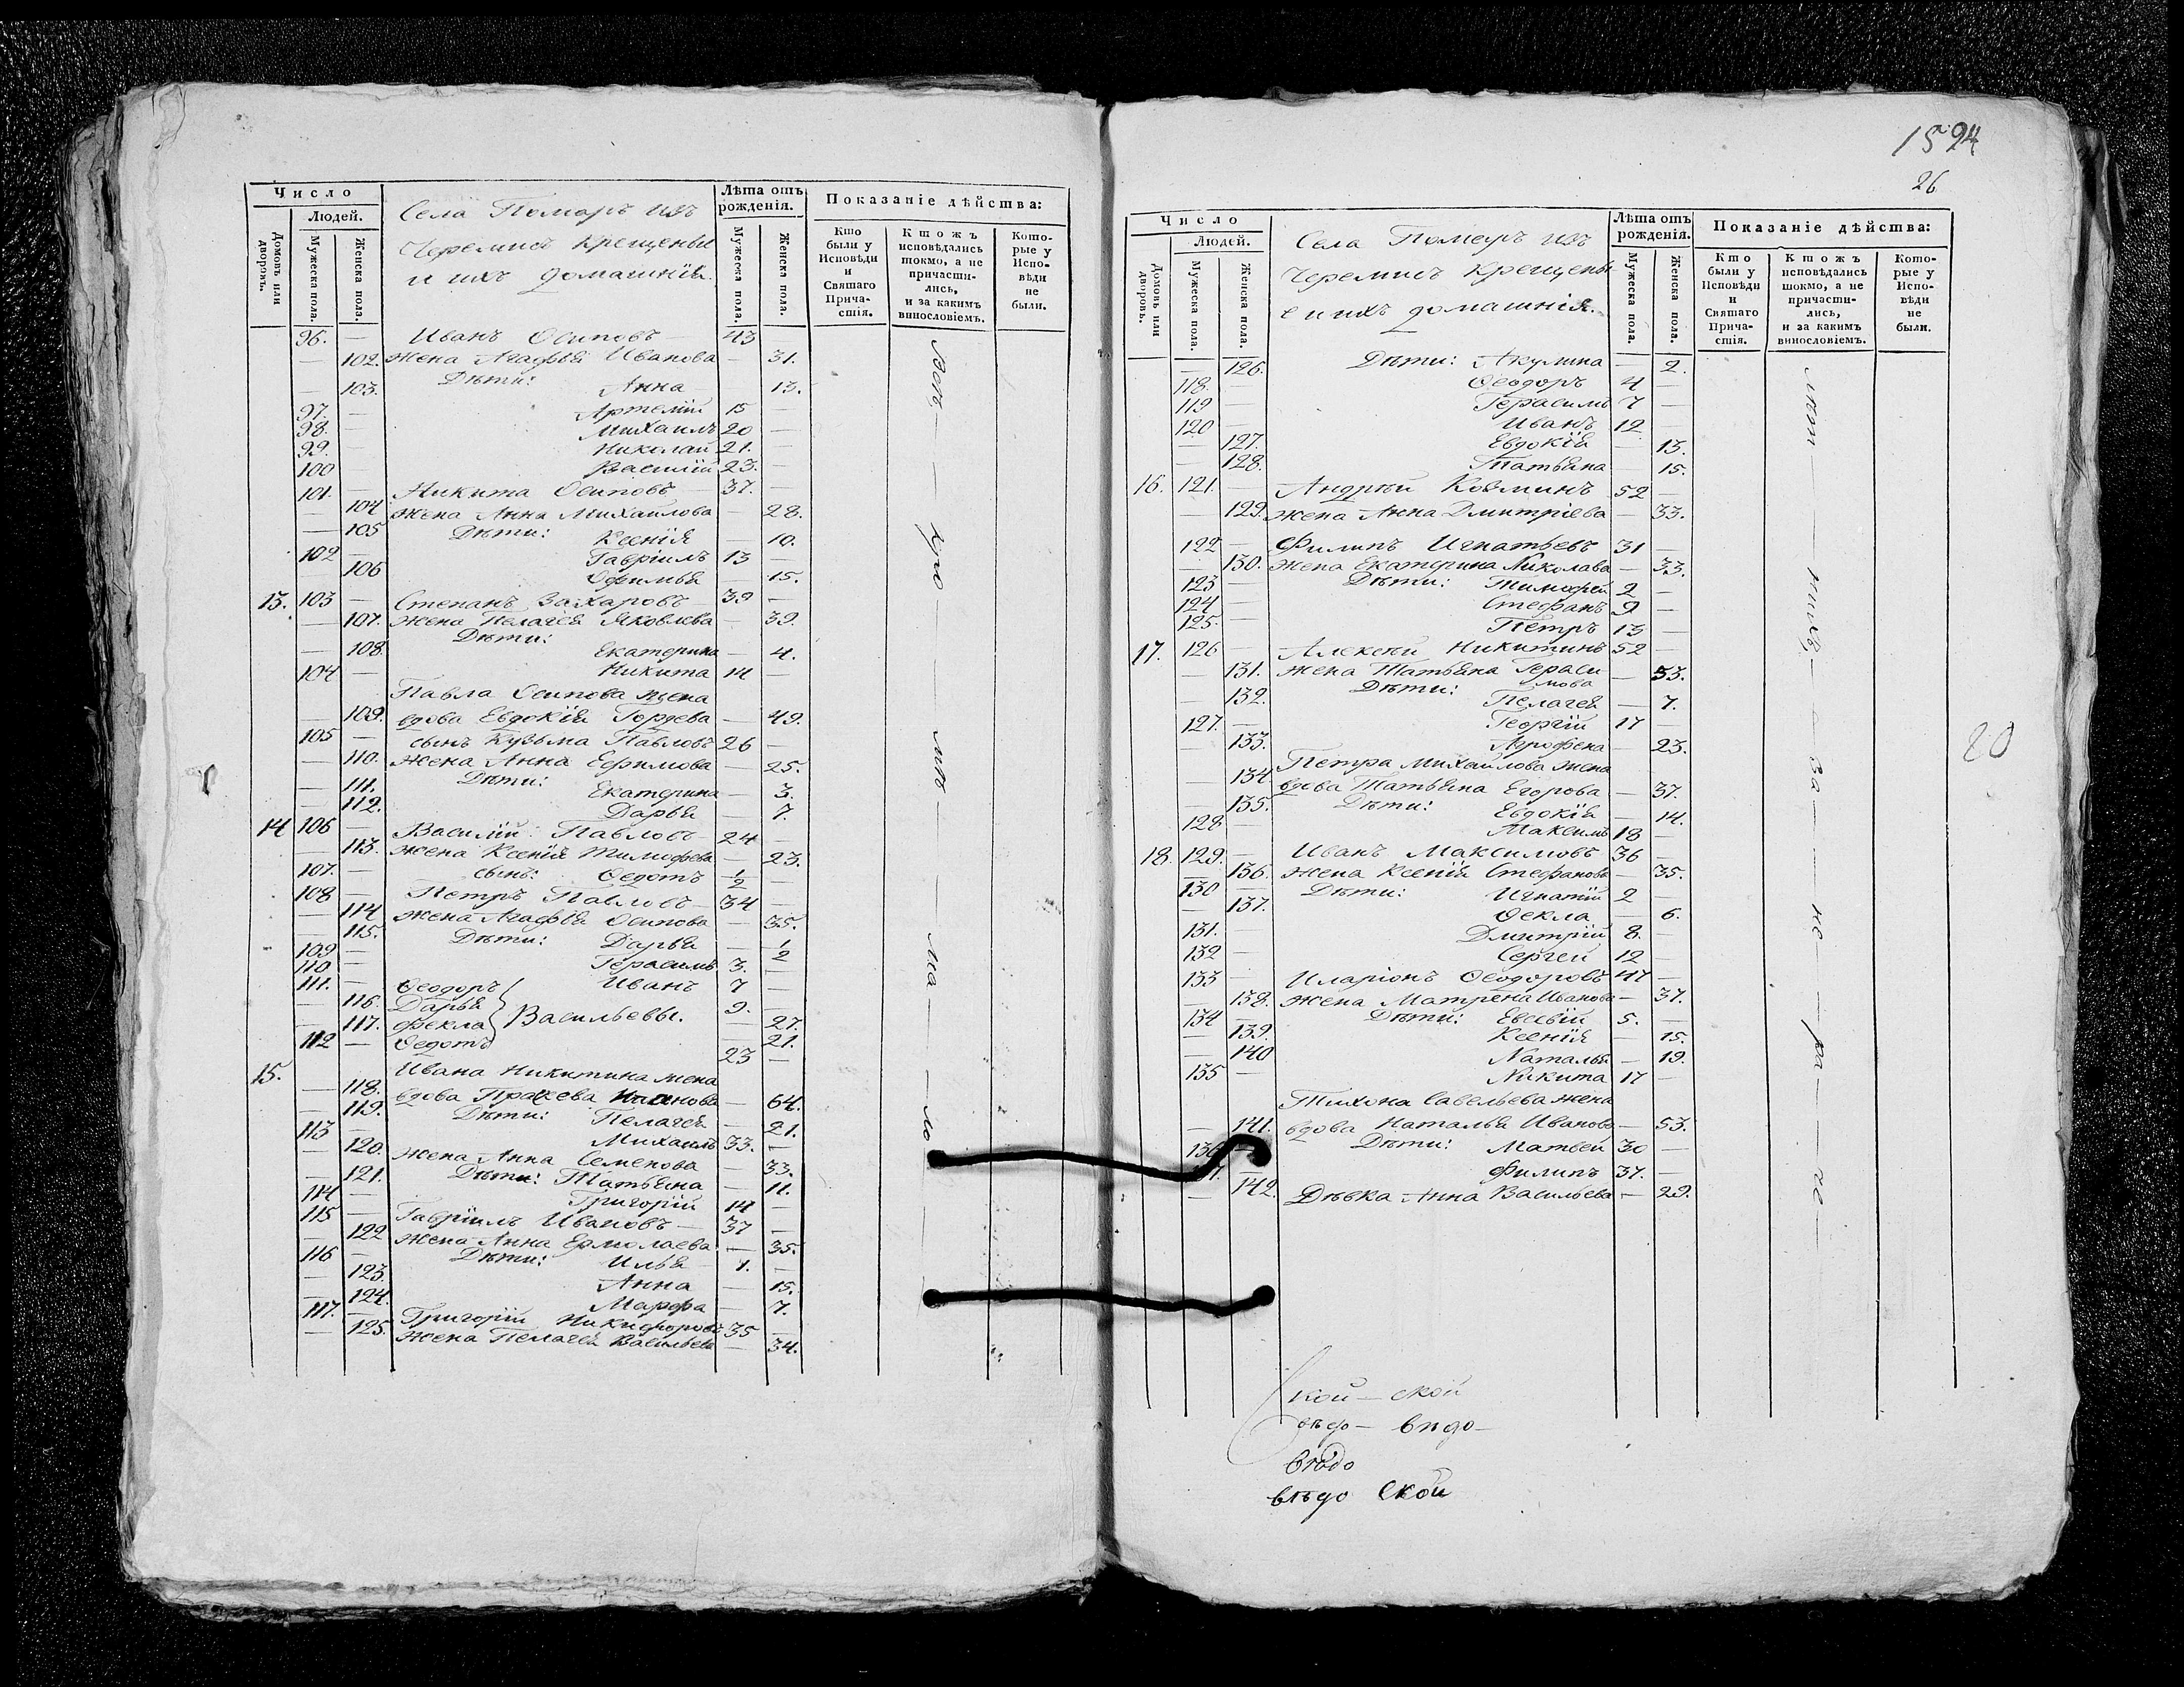 Число
Людей.
Домовъ или дворовъ.
Мужеска пола.
Женска пола.
Села Помаръ изъ
Черемисъ крещены
и ихъ домашнія.
Лѣта отъ рожденія.
Мужеска пола.
Женска пола.
Показаніе дѣйства:
Кто были у Исповѣди и Святаго Причастія.
Ктожъ исповѣдались токмо, а не причастились, и за какимъ винословіемъ.
Которые у Исповѣди не были.
96. — Иванъ Осиповъ 43
— 102. жена Агафья Иванова — 31.
Дѣти:
— 103. Анна 13.
97. — Артемій 15 —
98. — Михаилъ 20 —
99. — Николай 21. —
100 Василій 23. —
101. — Никита Осиповъ 37. —
— 104 жена Анна Михаилова — 28.
— 105 Дѣти: Ксенія — 10.
102 — Гавріилъ 13 —
106 Офимья — 15.
13. 103 — Степанъ Захаровъ 39 —
— 107. жена Пелагея Яковлева — 39.
Дѣти:
— 108. Екатерина — 4.
104 — Никита 14 —
Павла Осипова жена
— 109. вдова Евдокія Гордева — 49.
105 — сынъ Кузьма Павловъ 26 —
— 110. жена Анна Ефимова — 25.
— 111. Дѣти: Екатерина — 3.
— 112. Дарья — 7.
14 106 — Василій Павловъ 24 —
— 113. жена Ксенія Тимофева — 23.
107. — сынъ: Ѳедотъ 1/2 —
108 — Петръ Павловъ 34 —
— 114 жена Агафья Осипова — 35.
— 115. Дѣти: Дарья — 1/2
109 — Герасимъ 3. —
110 — Иванъ 7 —
111. — Ѳеодоръ 9. —
— 116. Дарья Васильевы. — 27.
— 117. Фекла — 21.
112 — Ѳедотъ 23 —
15. Ивана Никитина жена
— 118. вдова — 64.
— 119. Дѣти: Пелагея — 21.
113 — Михаилъ 33. —
— 120. жена Анна Семенова — 33.
— 121. Дѣти: Татьяна — 11.
114 — Григорій 14 —
115 — Гавріилъ Ивановъ — 37 —
— 122 жена Анна Ермолаева — 35.
116 — Дѣти: Илья 1. —
— 123. Анна — 15.
— 124. Марфа — 7.
117. — Григорій Никифоровъ 35 —
— 125. жена Пелагея Васильева — 34.
1594
26
Число
Людей.
Домовъ или дворовъ.
Мужеска пола.
Женска пола.
Села Помаръ изъ
Черемисъ крещены
и ихъ домашнія.
Лѣта отъ рожденія.
Мужеска пола.
Женска пола.
Показаніе дѣйства:
Кто были у Исповѣди и Святаго Причастія.
Ктожъ исповѣдались токмо, а не причастились, и за какимъ винословіемъ.
Которые у Исповѣди не были.
— 126. Дѣти: Акулина — 2.
118. — Ѳеодоръ 4 —
119 — Герасимъ 7 —
120 — Иванъ 12
— 127. Евдокія — 13.
— 128. Татьяна — 15.
16. 121. — Андрей Козминъ 52 —
— 129. жена Анна Дмитріева — 33.
122 — Филипъ Игнатьевъ 31 —
— 130. жена Екатерина Николава — 33.
123 — Дѣти: Тимофей 2 —
124 — Стефанъ 9 —
125. — Петръ 13 —
17. 126 — Алексей Никитинъ 52 —
— 131. жена Татьяна Гераси
мова — 53.
— 132. Дѣти: Пелагея — 7.
127. — Георгій 17 —
— 133. Агрофена — 23.
Петра Михаилова жена
— 134 вдова Татьяна Егорова — 37.
— 135. Дѣти: Евдокія — 14.
128 — Максимъ 18 —
18. 129. — Иванъ Максимовъ 36 —
— 136. жена Ксенія Стефанова — 35.
130 — Дѣти: Игнатій 2 —
— 137. Ѳекла — 6.
131. — Дмитрій 8. —
132 — Сергей 12 —
133 — Иларіонъ Ѳеодоровъ 47 —
— 138. жена Матрена Иванова — 37.
134 — Дѣти: Евсевій 5. —
— 139. Ксенія — 15.
— 140 Наталья — 19.
135 — Никита 17 —
Тихона Савельева жена
— 141. вдова Наталья Иванова — 53.
136 Дѣти: Матвей 30 —
Филипъ 37. —
— 142. Дѣвка Анна Васильева — 29.
20
кой — ской
вѣдо — вѣдо —
вѣдо
вѣдо ской